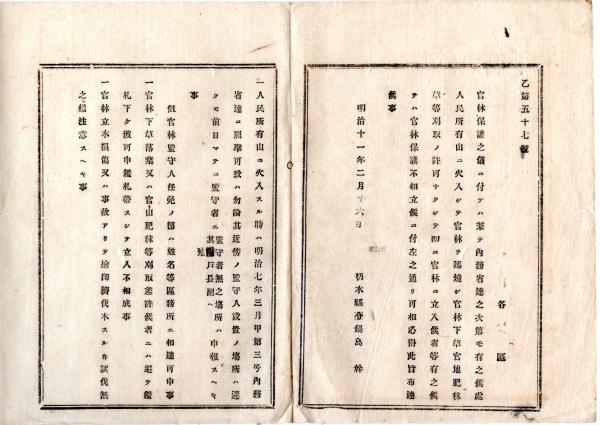 乙第五十七號
各區
官林保護之儀ニ付テハ兼テ內務省達之次第モ有之候處
人民所有山ニ火入シテ官林ヲ延燒シ官林下草官地肥秣
草等刈取ノ許可ナクシテ叨ニ官林ニ立入候者等有之候
テハ官林保護不相立候ニ付左之通リ可相心得此旨布達
候事
明治十一年二月十六日 栃木縣令鍋島幹
一人民所有山ニ火入スル時ハ明治七年三月甲第三号內務
省達ニ照準可致ハ勿論其近傍ノ監守人設置ノ場所ハ遲
クモ前日マテニ監守者エ監守者無之場所ハ其戶長副ヘ申報スヘキ
事
但官林監守人任免ノ節ハ姓名等區務所エ相達可申事
一官林下草落葉又ハ官山肥秣等刈取差許候者エハ邏テ鑑
札下ケ渡可申鑑札帶スシテ立入不相成事
一官林立木損傷又ハ事故アリテ檢印濟伐木スルキ誤伐無
之樣注意スヘキ事